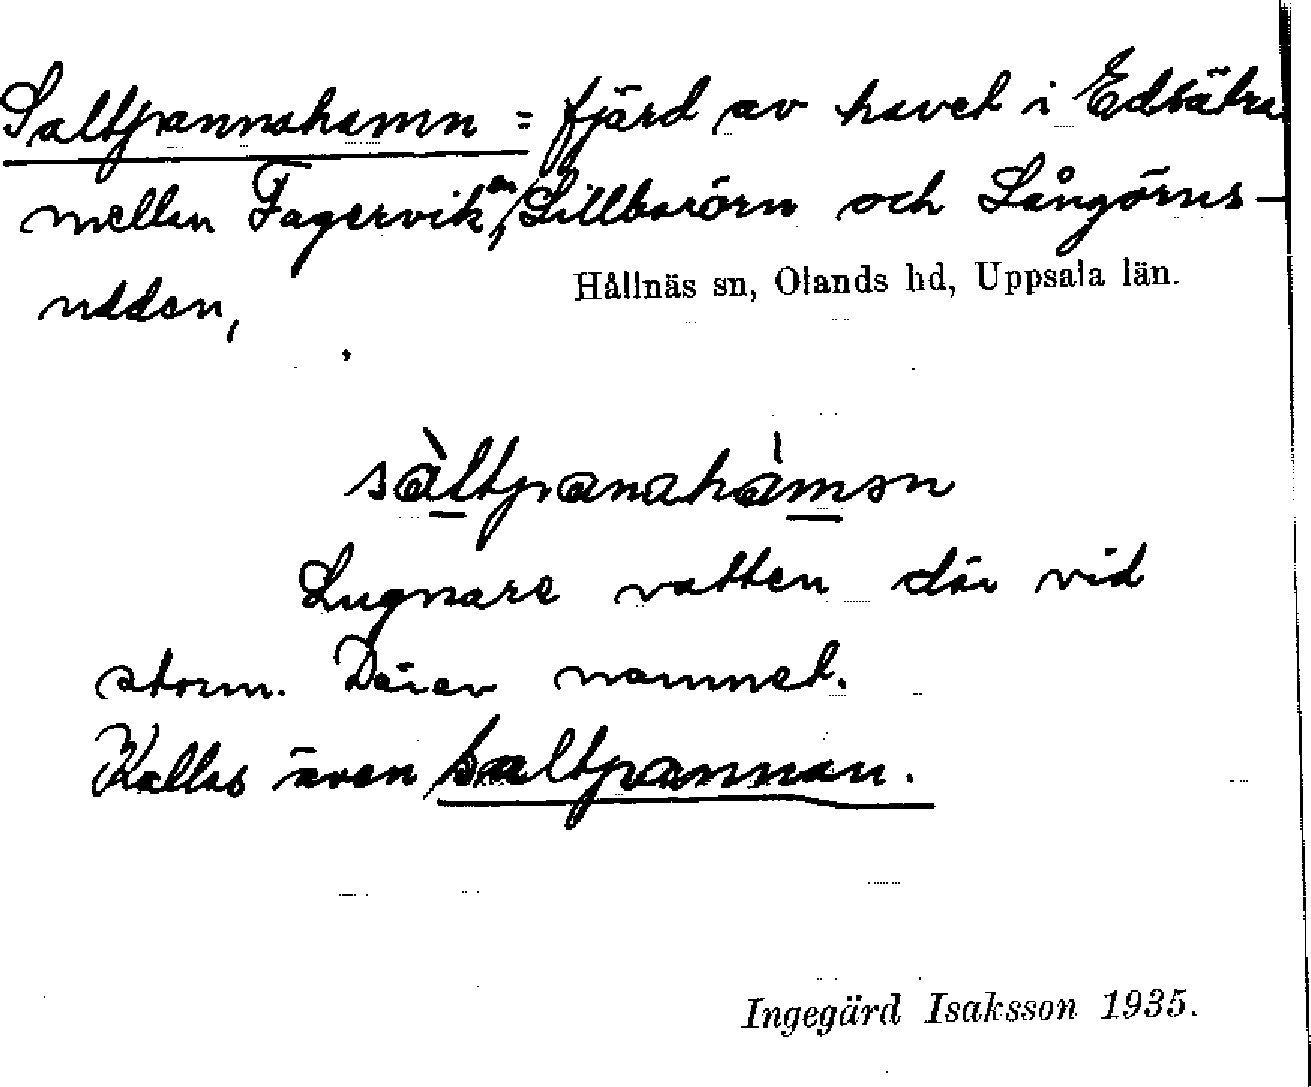 Saltpannahamn = fjärd av havet i Edsätra
mellan Fagerviken, Lillborörn och Långörns-
udden,
Hållnäs sn, Olands hd, Uppsala län.
sàltpanahàmən
Lugnare vatten där vid
storm. Därav namnet.
Kallas även Saltpannan.
Ingegärd Isaksson 1935.